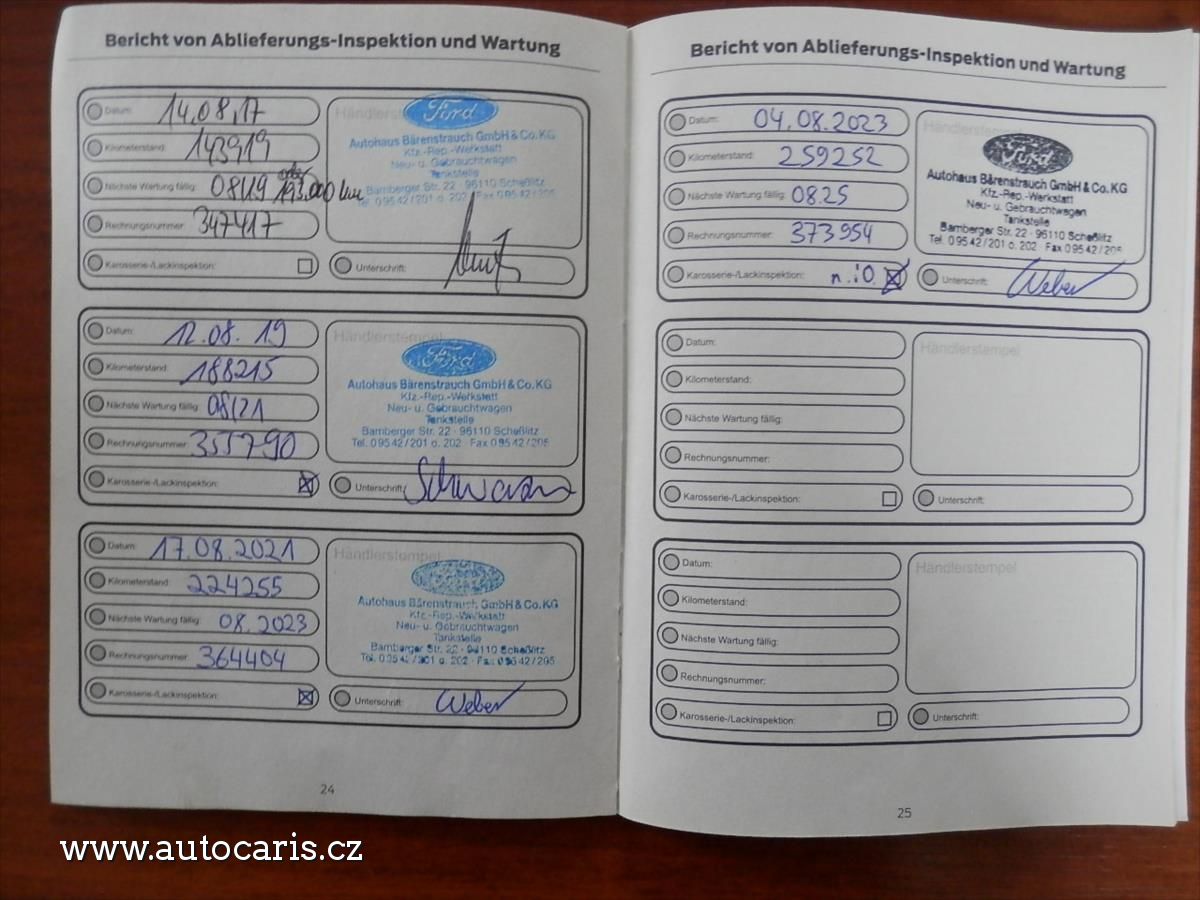 Bericht von Ablieferungs-Inspektion und Wartung
Datum: 14.08.17
Kilometerstand: 143919
Nächste Wartung fällig: 08/19 oder 193.000 km
Rechnungsnummer: 347417
Karosserie-/Lackinspektion:
Händlerstempel
Ford
Autohaus Bärenstrauch GmbH & Co. KG
Kfz.-Rep.-Werkstatt
Neu- u. Gebrauchtwagen
Tankstelle
Bamberger Str. 22 · 96110 Scheßlitz
Tel. 0 95 42 / 201 o. 202 · Fax 0 95 42 / 205
Unterschrift:
Datum: 12.08.19
Kilometerstand: 188215
Nächste Wartung fällig: 08/21
Rechnungsnummer: 355790
Karosserie-/Lackinspektion: ☒
Händlerstempel
Ford
Autohaus Bärenstrauch GmbH & Co. KG
Kfz.-Rep.-Werkstatt
Neu- u. Gebrauchtwagen
Tankstelle
Bamberger Str. 22 · 96110 Scheßlitz
Tel. 0 95 42 / 201 o. 202 · Fax 0 95 42 / 205
Unterschrift:
Datum: 17.08.2021
Kilometerstand: 224255
Nächste Wartung fällig: 08.2023
Rechnungsnummer: 364404
Karosserie-/Lackinspektion: ☒
Händlerstempel
Autohaus Bärenstrauch GmbH & Co. KG
Kfz.-Rep.-Werkstatt
Neu- u. Gebrauchtwagen
Tankstelle
Bamberger Str. 22 · 96110 Scheßlitz
Tel. 0 95 42 / 201 o. 202 · Fax 0 95 42 / 205
Unterschrift: Weber
24
Bericht von Ablieferungs-Inspektion und Wartung
Datum: 04.08.2023
Kilometerstand: 259252
Nächste Wartung fällig: 08.25
Rechnungsnummer: 373954
Karosserie-/Lackinspektion: n.i.O. ☒
Händlerstempel
Ford
Autohaus Bärenstrauch GmbH & Co. KG
Kfz.-Rep.-Werkstatt
Neu- u. Gebrauchtwagen
Tankstelle
Bamberger Str. 22 · 96110 Scheßlitz
Tel. 0 95 42 / 201 o. 202 · Fax 0 95 42 / 205
Unterschrift: Weber
Datum:
Kilometerstand:
Nächste Wartung fällig:
Rechnungsnummer:
Karosserie-/Lackinspektion:
Händlerstempel
Unterschrift:
Datum:
Kilometerstand:
Nächste Wartung fällig:
Rechnungsnummer:
Karosserie-/Lackinspektion:
Händlerstempel
Unterschrift:
25
www.autocaris.cz